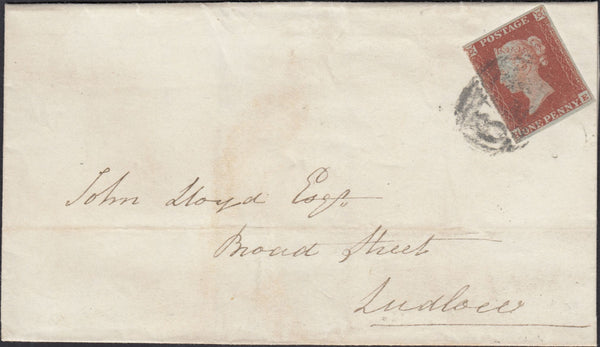 POSTAGE
ONE PENNY
John Lloyd Esqr
Broad Street
Ludlow